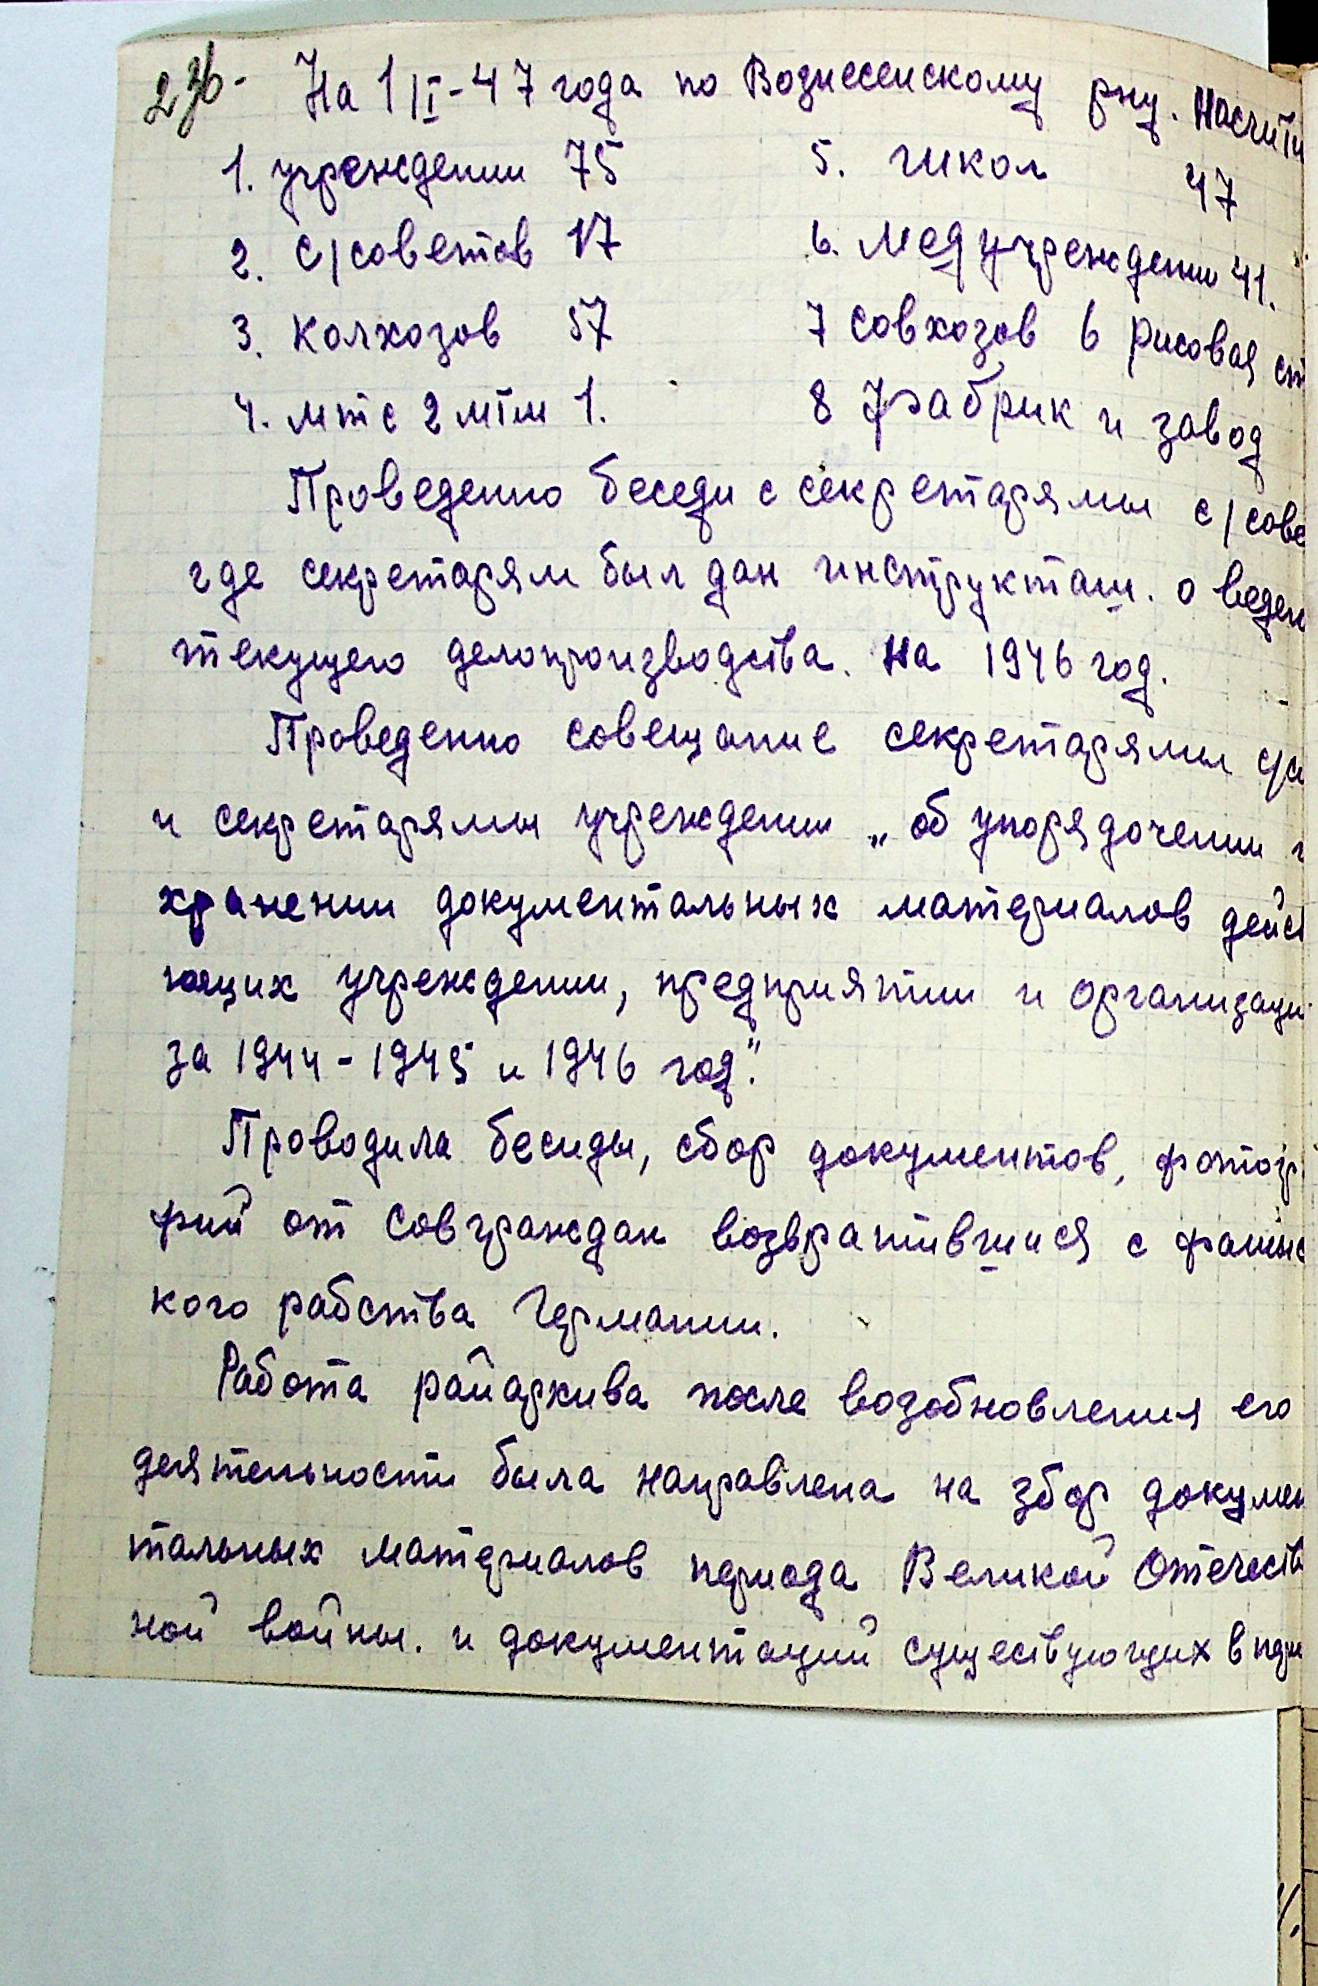 На 1/I-47 года по Вознесенскому р-ну. Насчити
1. учреждении 75
5. школ 47
2. с/советов 17
6. Медучреждении 41.
3. Колхозов 57
7 совхозов 6 рисовая ст
4. мтс 2 мтм 1.
8 Фабрик и завод
Проведенно беседи с секретарями с/сове
где секретарям был дан инструкташ. о веден
текущего делопроизводства. На 1946 год.
Проведенно совещание секретарями с/с
и секретарями учреждении „об упорядочении и
хранении документальных материалов дейст
ющих учреждении, предприятии и организаци
за 1944-1945 и 1946 год".
Проводила бесиды, сбор документов, фотогр
фий от совграждан возвратившися с фашис
кого рабства Германии.
Работа райархива после возобновления его
деятельности была направлена на збор докумен
тальных материалов периода Великой Отечеств
ной войны. и документаций существующих в пери